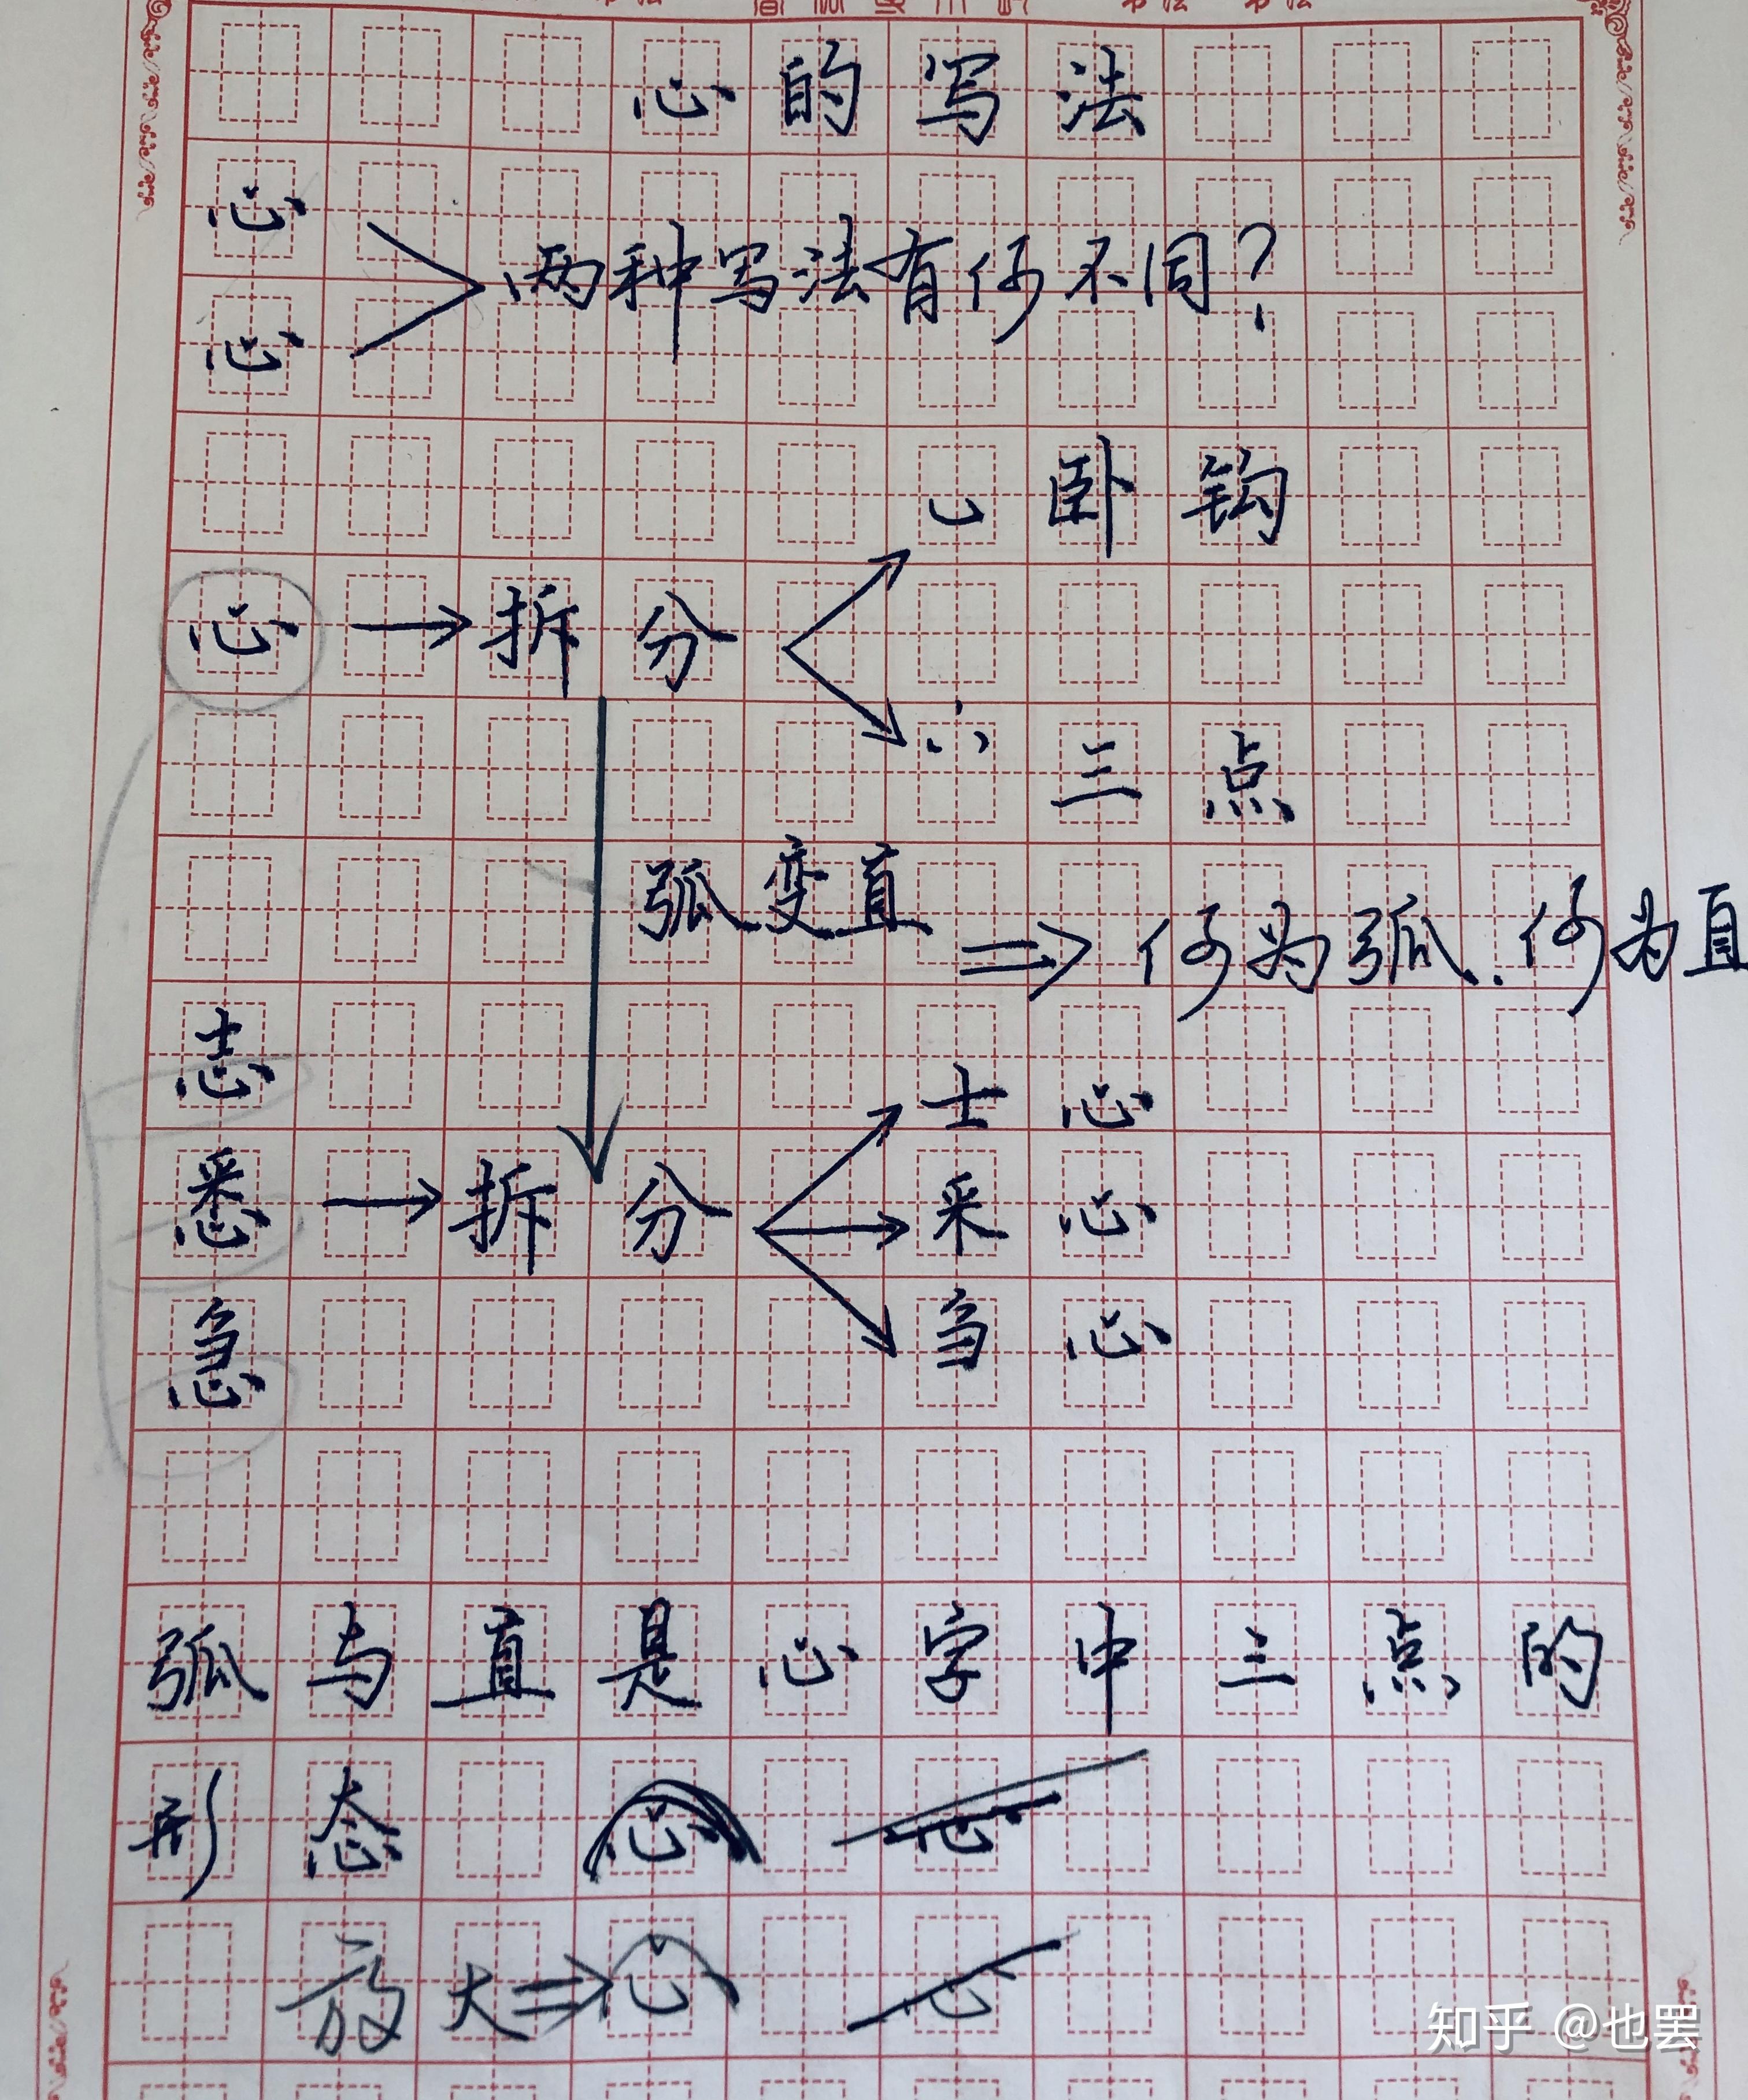 心的写法
心
两种写法有何不同?
心
乚卧钩
心→拆分
三点
弧变直
⇒何为弧.何为直
志
士心
悉→拆分
釆心
急
刍心
弧与直是心字中三点的
形态 心 心
放大⇒心 心
知乎 @也罢